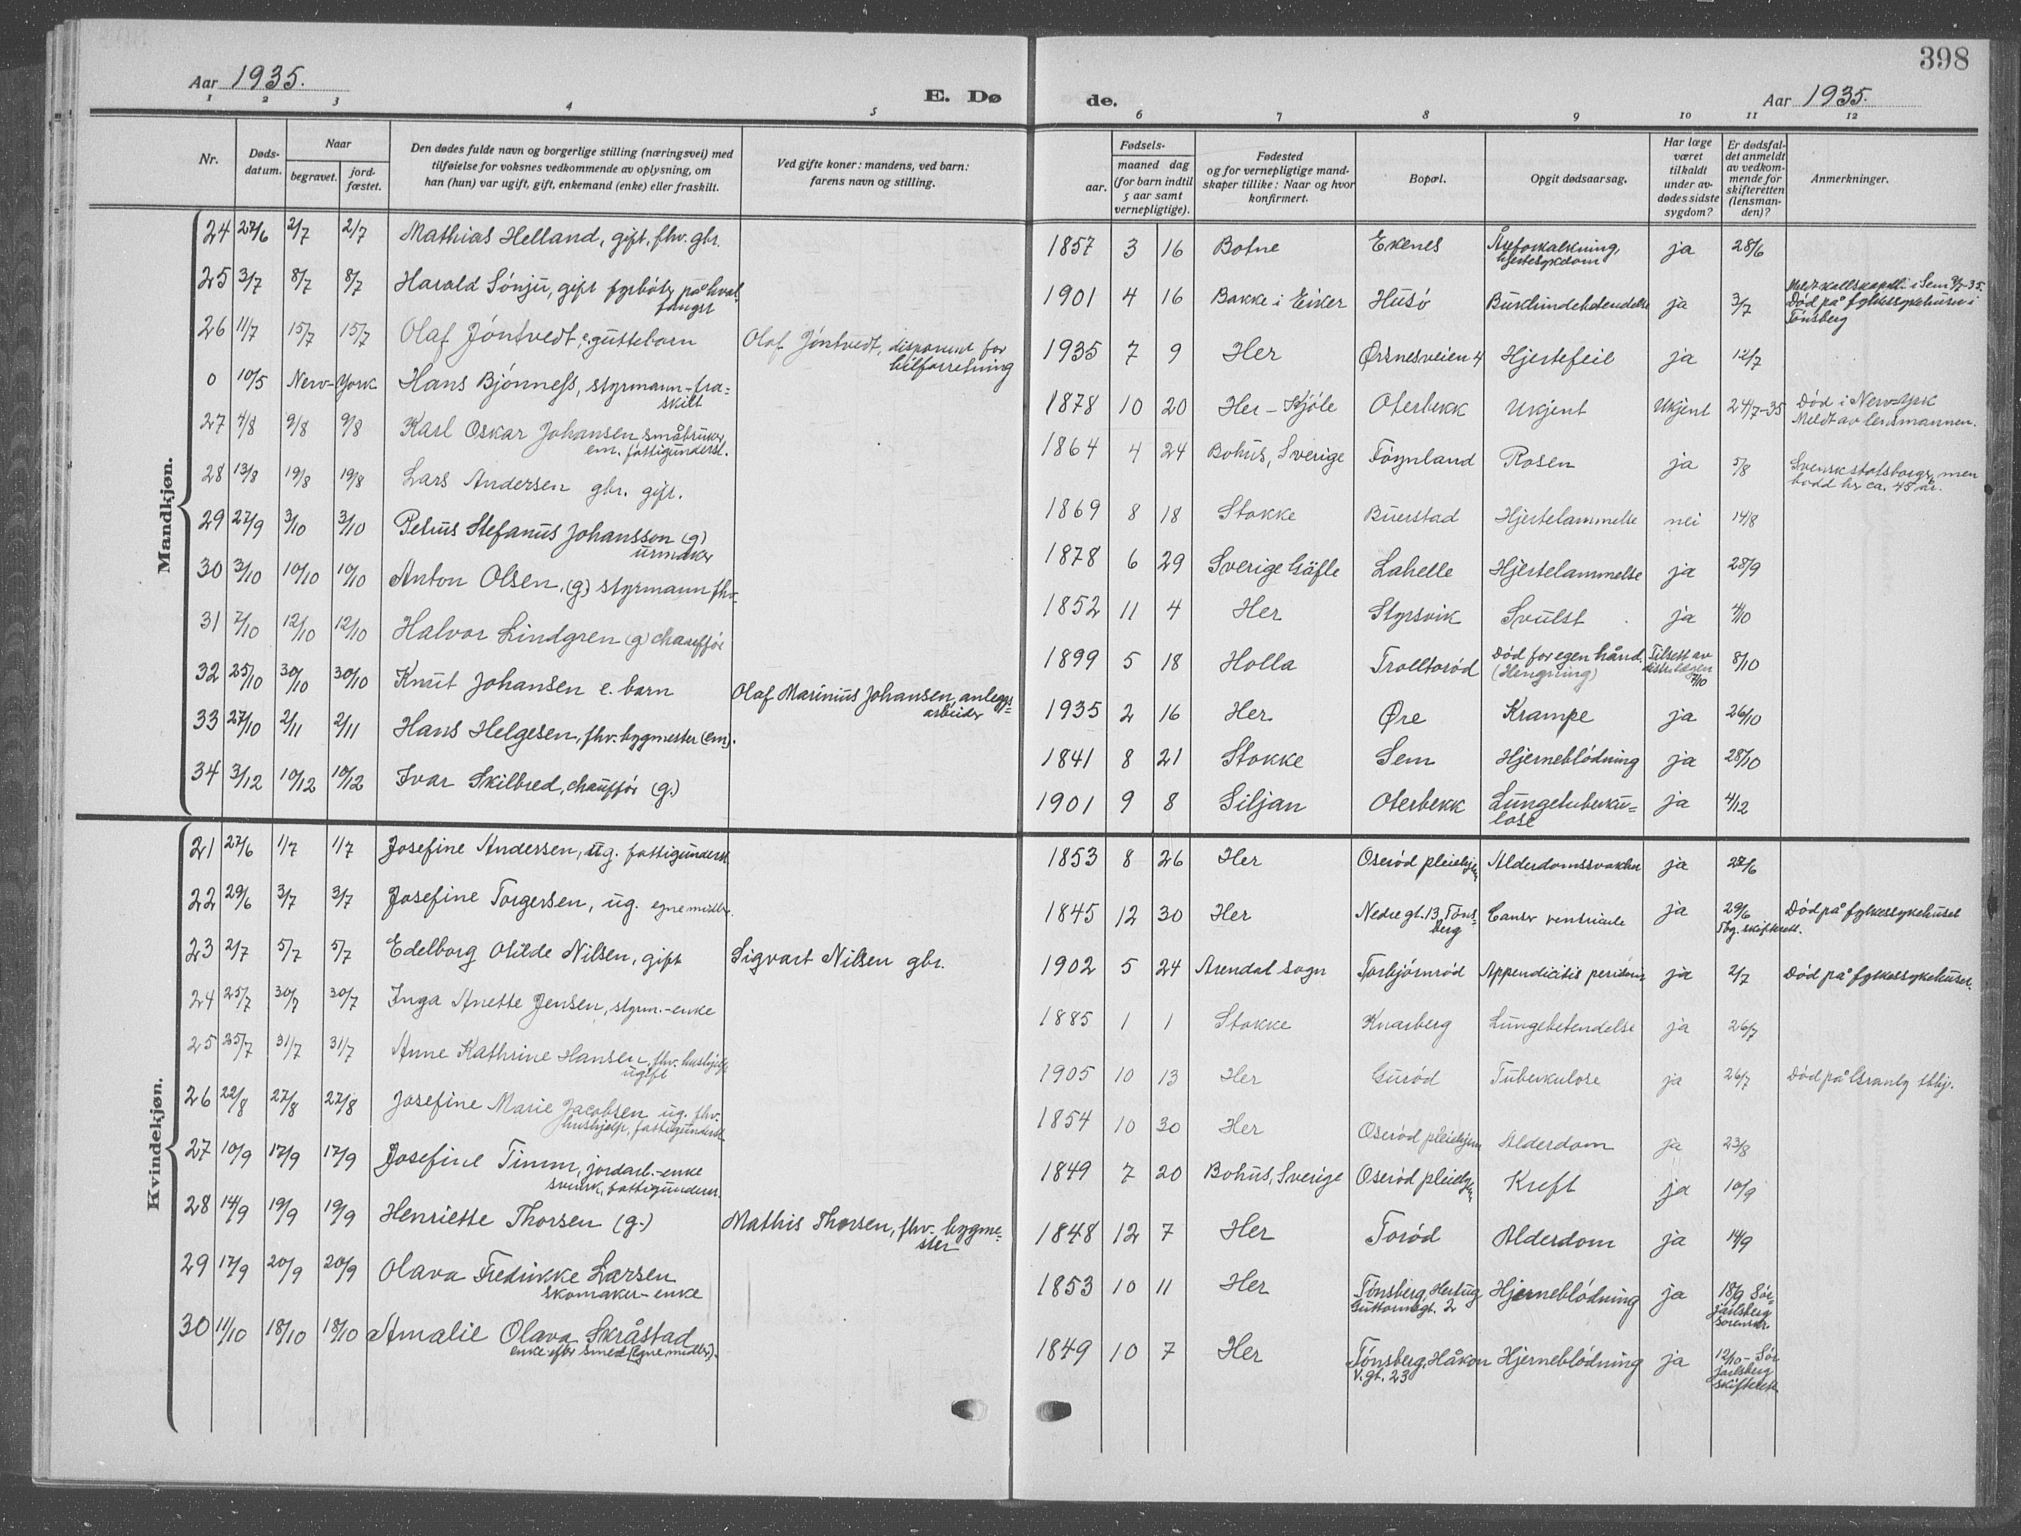 398
Aar 1935.
E. Dø
de.
Aar 1935.
1 2 3 4 5 6 7 8 9 10 11 12
Nr.
Døds-
datum.
Naar
begravet.
jord-
fæstet.
Den dødes fulde navn og borgerlige stilling (næringsvei) med
tilføielse for voksnes vedkommende av oplysning, om
han (hun) var ugift, gift, enkemand (enke) eller fraskilt.
Ved gifte koner: mandens, ved barn:
farens navn og stilling.
Fødsels-
aar.
maaned dag
(for barn indtil
5 aar samt
vernepligtige).
Fødested
og for vernepligtige mand-
skaper tillike: Naar og hvor
konfirmert.
Bopæl.
Opgit dødsaarsag.
Har læge
været
tilkaldt
under av-
dødes sidste
sygdom?
Er dødsfal-
det anmeldt
av vedkom-
mende for
skifteretten
(lensman-
den)?
Anmerkninger.
Mandkjøn.
24 27/6 2/7 2/7 Mathias Helland, gift, fhv. gbr. 1857 3 16 Botne Ekenes Åreforkalkning, ja 28/6
hjertesykdom
25 3/7 8/7 8/7 Harald Sønju, gift fyrbøter på hval 1901 4 16 Bakke i Eiker Husø Bukhindebetendelse ja 3/7 i Sem 9/7-35.
fangst
Død på fylkessykehuset i
Tønsberg
26 11/7 15/7 15/7 Olaf Jøntvedt, e. guttebarn Olaf Jøntvedt, disponent for 1935 7 9 Her Ørsnesveien 4 Hjertefeil ja 12/7
bilforretning
0 10/5 New-York Hans Bjønness, styrmann-fra- 1878 10 20 Her-Kjøle Oterbekk Ukjent Ukjent 24/7-35 Død i New-York
skilt
Meldt av lensmannen.
27 4/8 9/8 9/8 Karl Oskar Johansen småbruker, 1864 4 24 Bohus, Sverige Føynland Rosen ja 5/8 Svensk statsborger, men
em. fattigunderst.
bodd her ca. 45 år.
28 13/8 19/8 19/8 Lars Andersen gbr. gift. 1869 8 18 Stokke Buerstad Hjertelammelse nei 14/8
29 27/9 3/10 3/10 Petrus Stefanus Johansson (g) 1878 6 29 Sverige Gäfle Lahelle Hjertelammelse ja 28/9
urmaker
30 3/10 10/10 10/10 Anton Olsen, (g) styrmann fhv. 1852 11 4 Her Styrsvik Svulst ja 4/10
31 7/10 12/10 12/10 Halvor Lindgren (g) chauffør 1899 5 18 Holla Trolltorød Død for egen hånd. Tilsett av 8/10
(Hengning) distr.legen
7/10
32 25/10 30/10 30/10 Knut Johansen e. barn Olaf Marinius Johansen, anleggs- 1935 2 16 Her Øre Krampe ja 26/10
arbeider
33 27/10 2/11 2/11 Hans Helgesen, fhv. bygmester (em). 1841 8 21 Stokke Sem Hjerneblødning ja 28/10
34 3/12 10/12 10/12 Ivar Skilbred, chauffør (g.) 1901 9 8 Siljan Oterbekk Lungetuberku- ja 4/12
lose
Kvindekjøn.
21 27/6 1/7 1/7 Josefine Andersen, ug. fattigunderst. 1853 8 26 Her Oserød pleiehjem Alderdomssvakhet ja 28/6
22 29/6 3/7 3/7 Josefine Torgersen, ug. egne midler. 1845 12 30 Her Nedre gt. 13, Tøns- Cancer ventricule ja 29/6 Død på fylkessykehuset
berg
Tbg. skifterett.
23 2/7 5/7 5/7 Edelborg Otilde Nilsen, gift Sigvart Nilsen gbr. 1902 5 24 Arendal sogn Torbjørnrød Appendicitis ja 2/7 Død på fylkessykehuset.
24 25/7 30/7 30/7 Inga Anette Jensen, styrm.-enke 1885 1 1 Stokke Knarberg Lungebetendelse ja 26/7
25 25/7 31/7 31/7 Anne Kathrine Hansen, fhv. hushjelp 1905 10 13 Her Gurød Tuberkulose ja 26/7 Død på Granly tbhj.
ugift
26 22/8 27/8 27/8 Josefine Marie Jacobsen ug. fhv. 1854 10 30 Her Oserød pleiehjem Alderdom ja 23/8
hushjelp, fattigunderst.
27 10/9 17/9 17/9 Josefine Timm, jordarb.-enke 1849 7 20 Bohus, Sverige Oserød pleiehjem Kreft ja 10/9
svensk, fattigunderst.
28 14/9 19/9 19/9 Henriette Thorsen (g.) Mathis Thorsen, fhv. bygme- 1848 12 7 Her Torød Alderdom ja 14/9
ster
29 17/9 20/9 20/9 Olava Fredrikke Larsen 1853 10 11 Her Tønsberg, Hertug Hjerneblødning ja 18/9 Sør-
skomaker-enke
Guttormsgt. 2
Jarlsberg
sorenskr.
30 11/10 18/10 18/10 Amalie Olava Skråstad 1849 10 7 Her Tønsberg, Håkon Hjerneblødning ja 12/10 - Sør
enke efter smed (egne midler).
V. gt. 23
Jarlsberg
skifterett